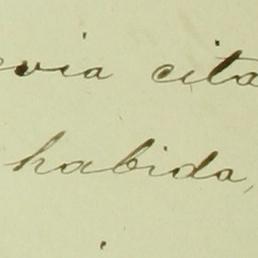 evia cita
habida,